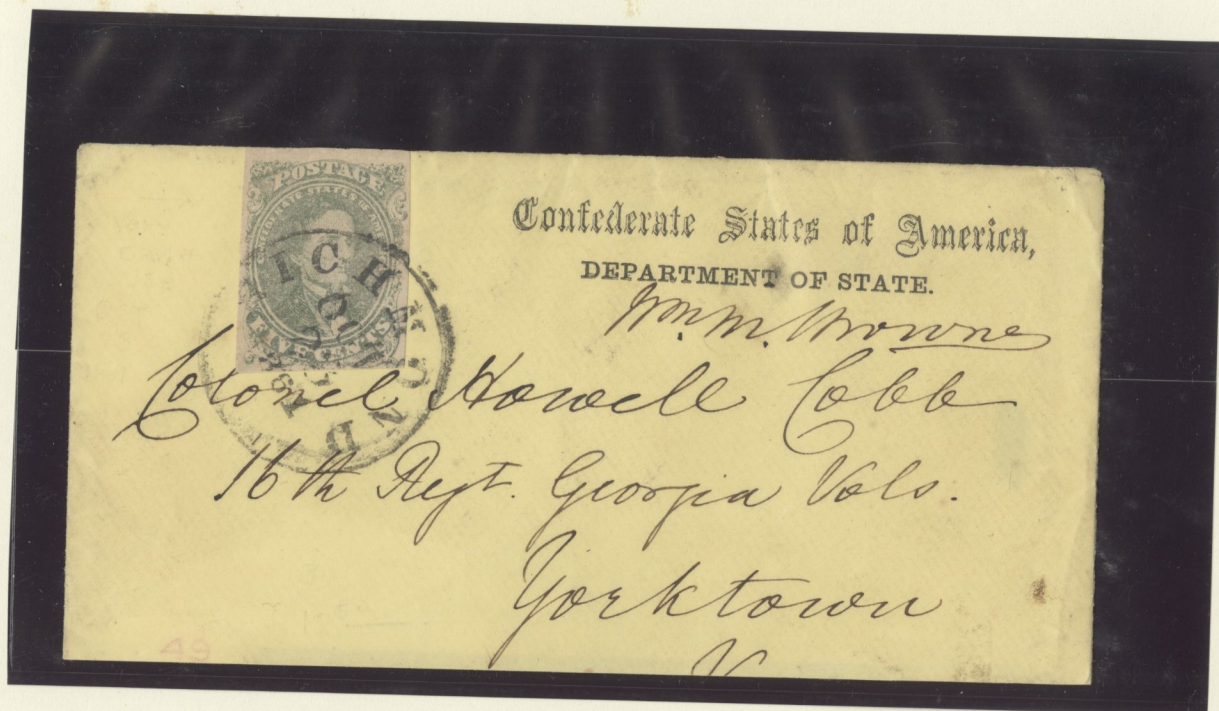 POSTAGE
CONFEDERATE STATES OF AMERICA
FIVE CENTS
RICHMOND
Confederate States of America,
DEPARTMENT OF STATE.
Wm. M. Browne
Colonel Howell Cobb
16th Regt. Georgia Vols.
Yorktown
49